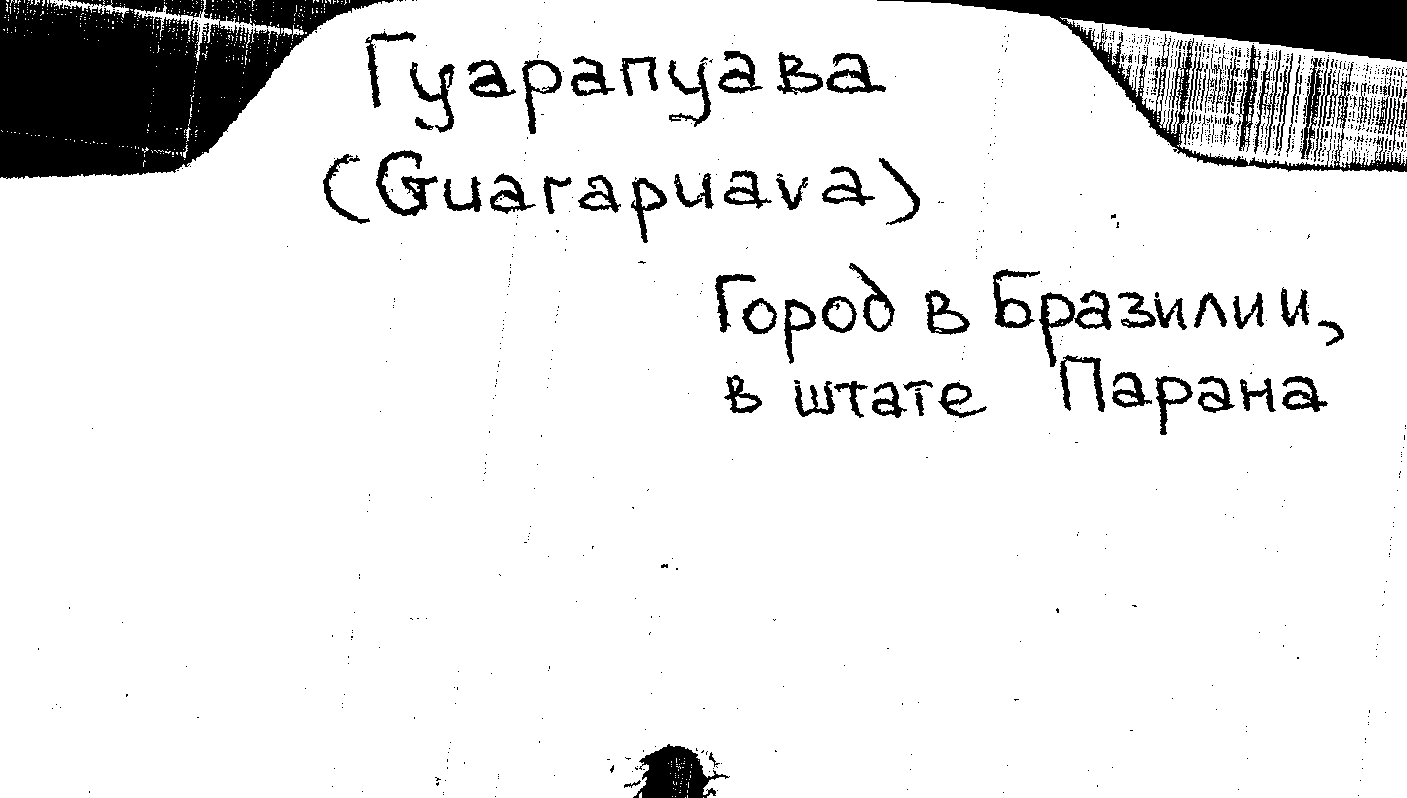 Гуарапуава
(Guarapuava)
Город в Бразилии,
в штате Парана